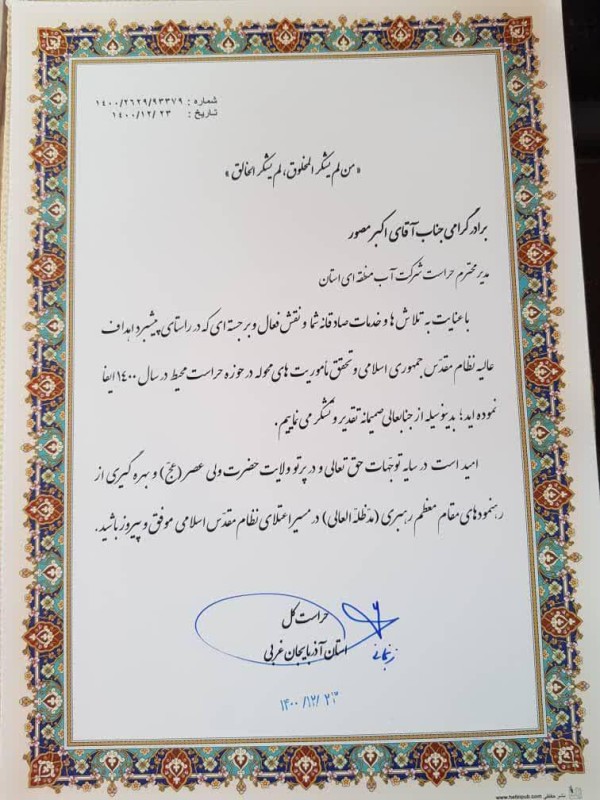 شماره : ۱۴۰۰/۲۱۲۹/۹۳۳۷۹
تاریخ : ۱۴۰۰/۱۲/۲۳
«من لم یشکر المخلوق، لم یشکر الخالق»
برادر گرامی جناب آقای اکبر مصور
مدیر محترم حراست شرکت آب منطقه ای استان
با عنایت به تلاش ها و خدمات صادقانه شما و نقش فعال و برجسته ای که در راستای پیشبرد اهداف
عالیه نظام مقدّس جمهوری اسلامی و تحقق مأموریت های محوله در حوزه حراست محیط در سال ۱۴۰۰ ایفا
نموده اید؛ بدینوسیله از جنابعالی صمیمانه تقدیر و تشکر می نماییم.
امید است در سایه توجّهات حق تعالی و در پرتو ولایت حضرت ولی عصر (عجّ) و بهره گیری از
رهنمودهای مقام معظم رهبری (مدّظلّه العالی) در مسیر اعتلای نظام مقدّس اسلامی موفق و پیروز باشید.
حراست کل
استان آذربایجان غربی
۱۴۰۰/۱۲/
www.hafezpub.com